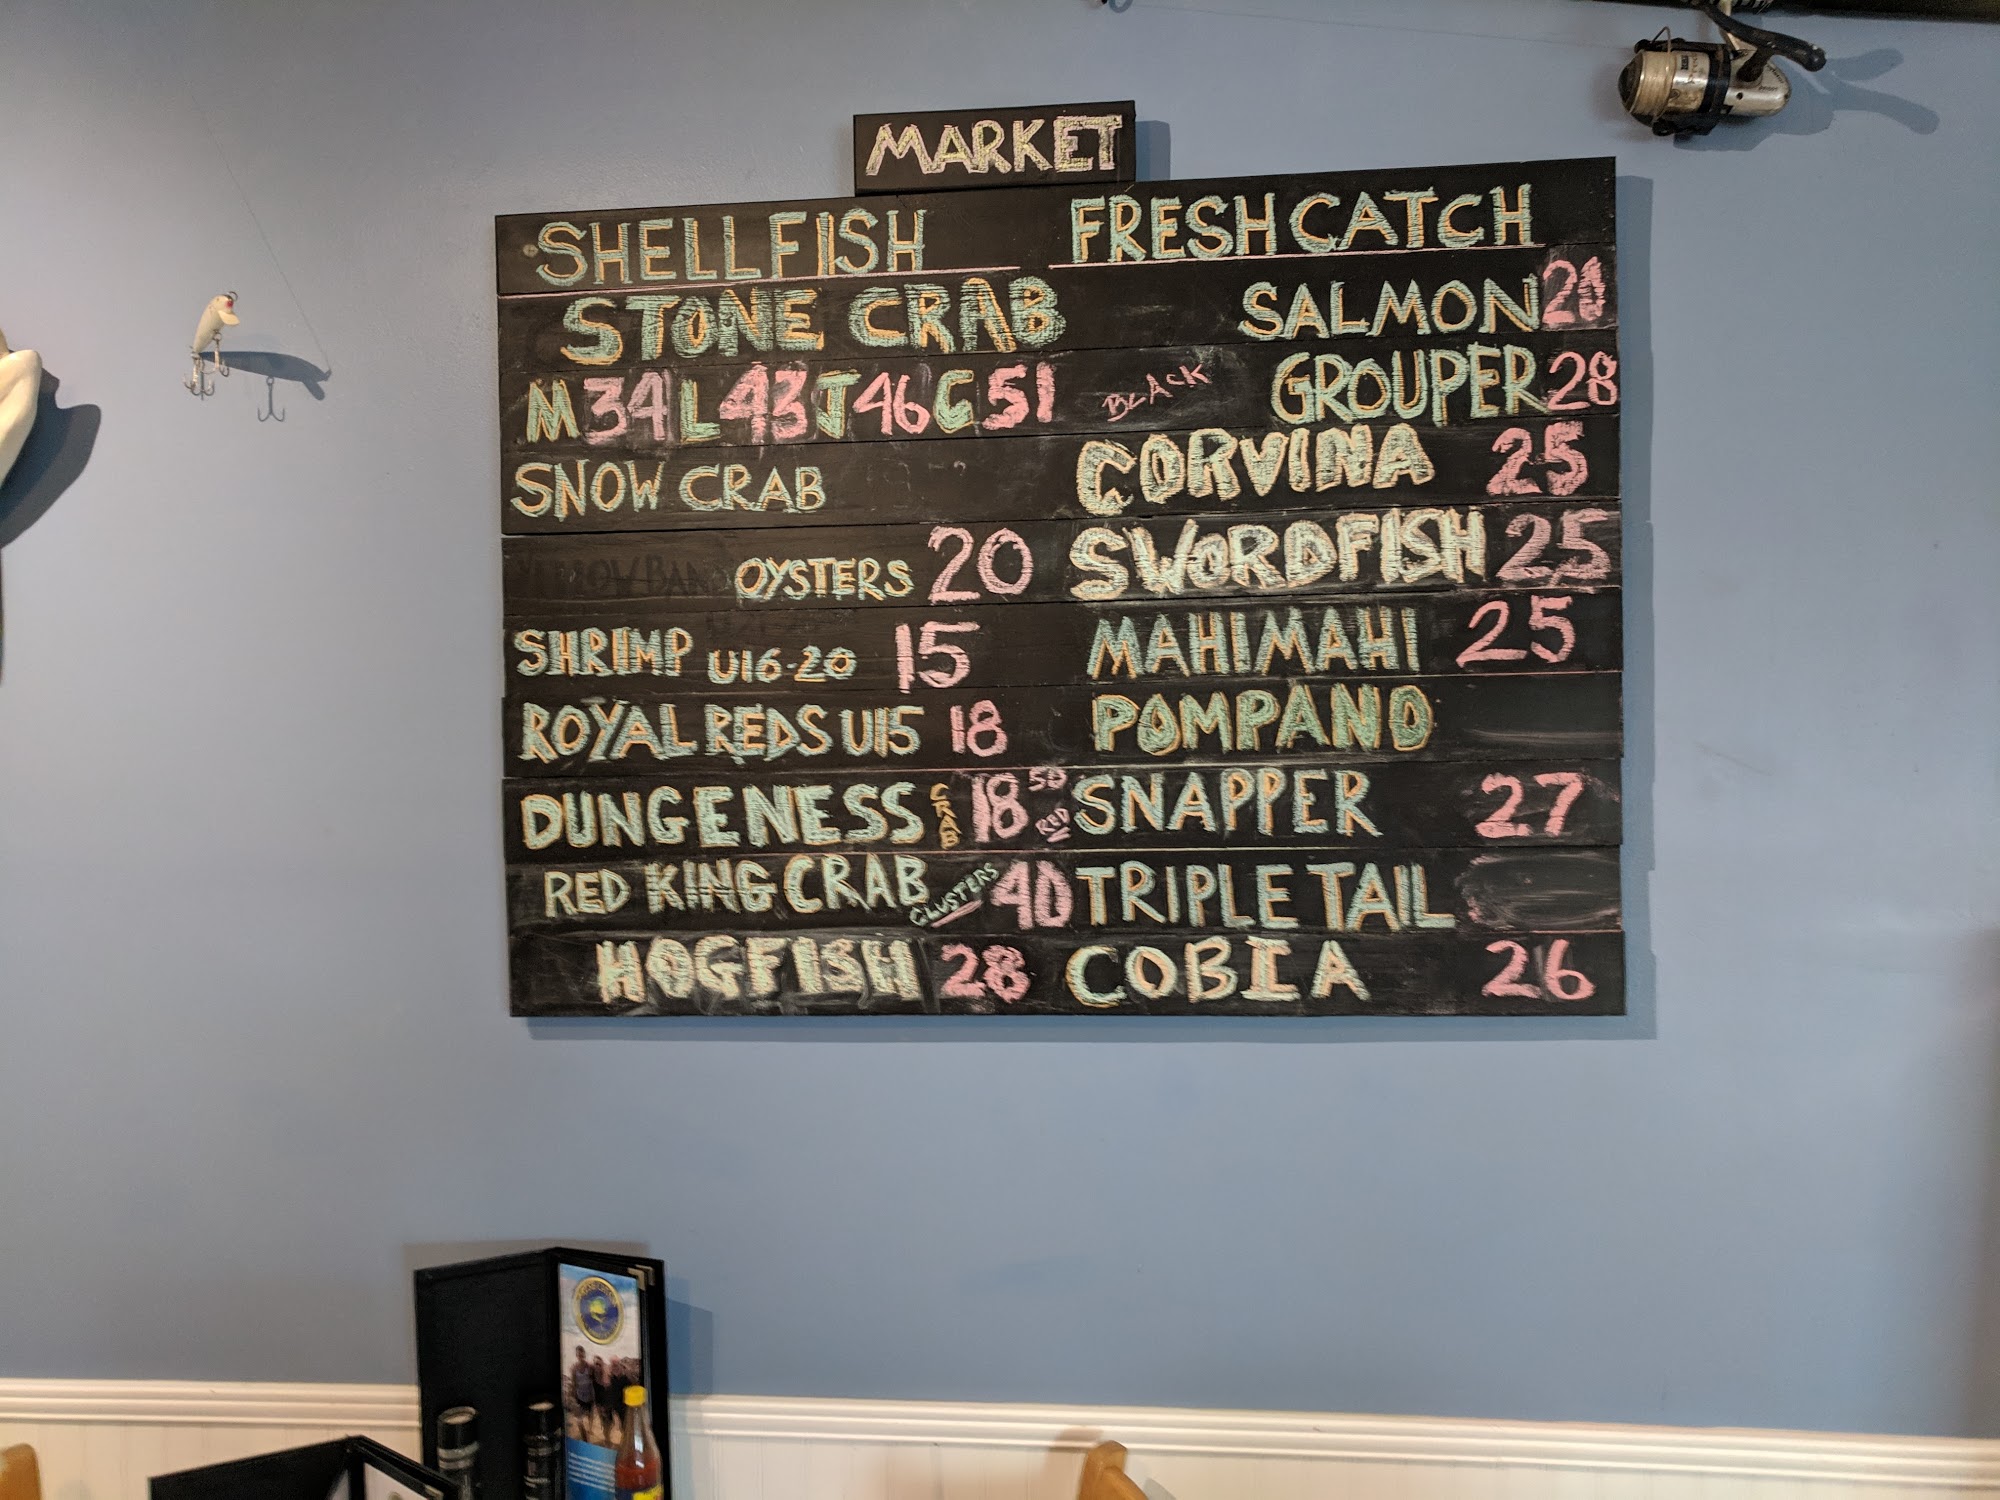 MARKET
SHELLFISH
STONE CRAB
M 34 L 43 J 46 C 51
SNOW CRAB
OYSTERS 20
SHRIMP U16-20 15
ROYAL REDS U15 18
DUNGENESS CRAB 18 50
RED KING CRAB CLUSTERS 40
HOGFISH 28
FRESH CATCH
SALMON
BLACK GROUPER 28
CORVINA 25
SWORDFISH 25
MAHI MAHI 25
POMPANO
RED SNAPPER 27
TRIPLE TAIL
COBIA 26